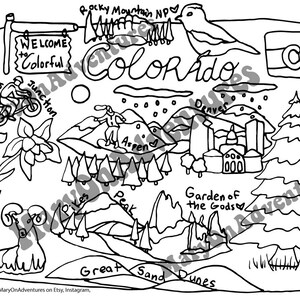 Rocky Mountain NP
WELCOME
to
Colorful
COLORADO
Junction
Denver
Aspen
Pikes Peak
Garden of
the Gods
Great Sand Dunes
MaryOnAdventures on Etsy, Instagram,
MaryOnAdventures